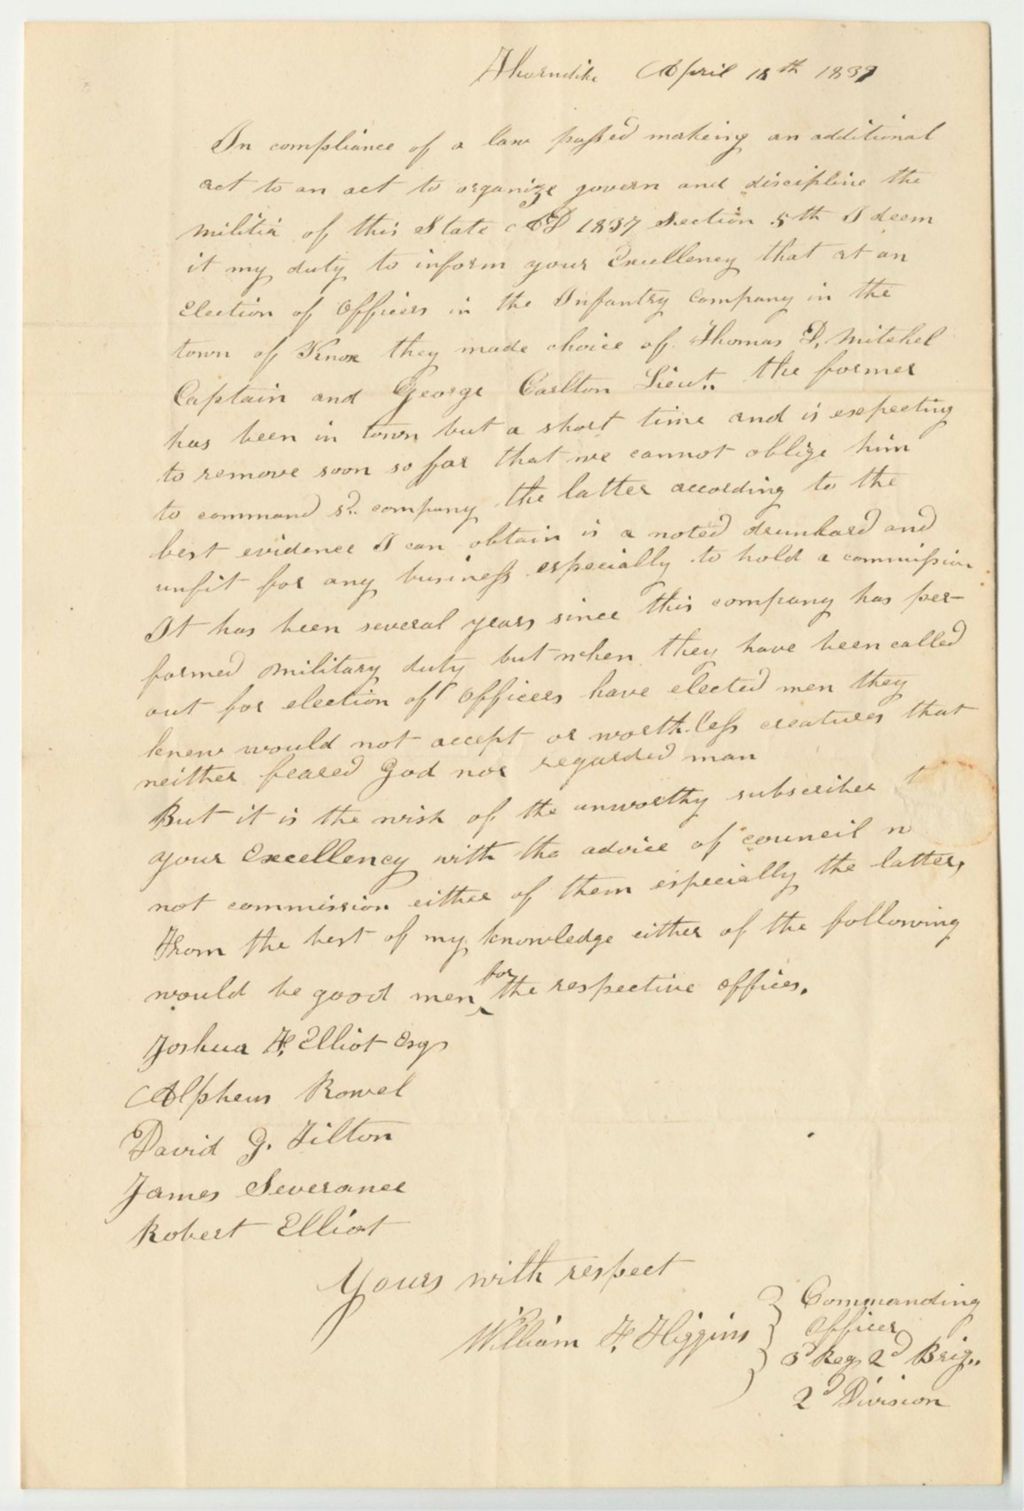 Thorndike April 18th 1839
In compliance of a law passed making an additional
act to an act to organize govern and discipline the
militia of this State AD 1837 Section 5th I deem
it my duty to inform your Excellency that at an
Election of Officers in the Infantry Company in the
town of Knox they made choice of Thomas P. Mitchel
Captain and George Carlton Lieut.. the former
has been in town but a short time and is expecting
to remove soon so far that we cannot oblige him
to command sd.. company the latter according to the
best evidence I can obtain is a noted drunkard and
unfit for any business especially to hold a commission
It has been several years since this company has per-
formed military duty but when they have been called
out for election of officers have elected men they
knew would not accept or worthless creatures that
neither feared God nor regarded man
But it is the wish of the unworthy subscriber
your Excellency with the advice of council
not commission either of them especially the latter,
From the best of my knowledge either of the following
would be good men for the respective offices.
Joshua F. Elliot Esq
Alpheus Rowel
David G. Tilton
James Severance
Robert Elliot
Yours with respect
William F. Higgins
Commanding
Officer
3d Reg 2d Brig..
2d Division